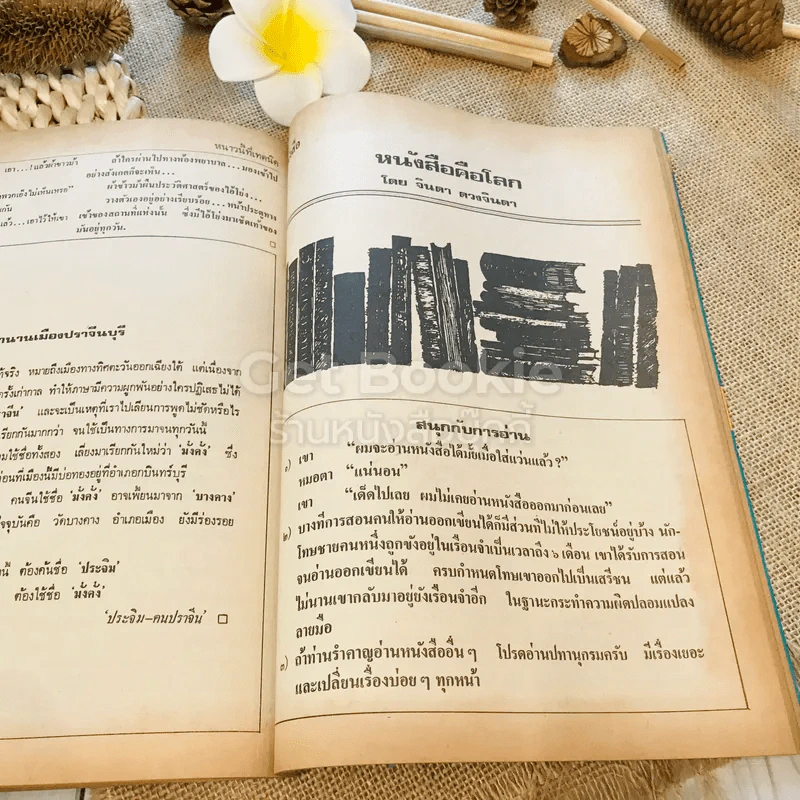 หนาวนี้ที่เทคนิค
เอา...! แล้วผ้าขาวม้า
พวกเอ็งไม่เห็นเหรอ”
แล้ว...เอาไว้ให้เขา
ถ้าใครผ่านไปทางห้องพยาบาล...มองเข้าไป
อย่างสังเกตก็จะเห็น...
ผ้าขาวม้าผืนประวัติศาสตร์ของไอ้โย่ง...
วางตัวเองอยู่อย่างเรียบร้อย...หน้าประตูทาง
เข้าของสถานที่แห่งนั้น ซึ่งมีไอ้โย่งมาเช็ดเท้าของ
มันอยู่ทุกวัน.
านานเมืองปราจีนบุรี
จริง หมายถึงเมืองทางทิศตะวันออกเฉียงใต้ แต่เนื่องจาก
ครั้งเก่ากาล ทำให้ภาษามีความผูกพันอย่างใครปฏิเสธไม่ได้
และจะเป็นเหตุที่เราไปเลียนการพูดไม่ชัดหรือไร
เรียกกันมากกว่า จนใช้เป็นทางการมาจนทุกวันนี้
มใช้ชื่อทั้งสอง เลี่ยงมาเรียกกันใหม่ว่า ‘มั่งคั่ง’ ซึ่ง
ก่อนที่เมืองนี้มีบ่อทองอยู่ที่อำเภอกบินทร์บุรี
คนจีนใช้ชื่อ ‘มั่งคั่ง’ อาจเพี้ยนมาจาก ‘บางคาง’
จจุบันคือ วัดบางคาง อำเภอเมือง ยังมีร่องรอย
นี้ ต้องค้นชื่อ ‘ประจิม’
ต้องใช้ชื่อ ‘มั่งคั่ง’
‘ประจิม-คนปราจีน’
หนังสือคือโลก
โดย จินดา ดวงจินดา
Get Bookie
ร้านหนังสือกู๊ดกี้
สนุกกับการอ่าน
๑) เขา “ผมจะอ่านหนังสือได้มั้ยเมื่อใส่แว่นแล้ว?”
หมอตา “แน่นอน”
เขา “เด็ดไปเลย ผมไม่เคยอ่านหนังสือออกมาก่อนเลย”
๒) บางทีการสอนคนให้อ่านออกเขียนได้ก็มีส่วนที่ไม่ให้ประโยชน์อยู่บ้าง นัก-
โทษชายคนหนึ่งถูกขังอยู่ในเรือนจำเป็นเวลาถึง ๖ เดือน เขาได้รับการสอน
จนอ่านออกเขียนได้ ครบกำหนดโทษเขาออกไปเป็นเสรีชน แต่แล้ว
ไม่นานเขากลับมาอยู่ยังเรือนจำอีก ในฐานะกระทำความผิดปลอมแปลง
ลายมือ
๓) ถ้าท่านรำคาญอ่านหนังสืออื่น ๆ โปรดอ่านปทานุกรมครับ มีเรื่องเยอะ
และเปลี่ยนเรื่องบ่อย ๆ ทุกหน้า